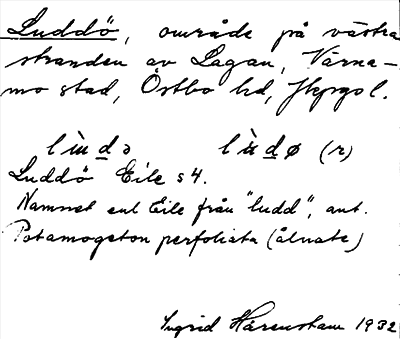 Luddö, område på västra
stranden av Lagan, Värna-
mo stad, Östbo hd, Jkpgs l.
lùdə lùdø (r)
Luddö Eile s 4.
Namnet enl Eile från "ludd", ant.
Potamogeton perfoliata (ålnate)
Ingrid Härenstam 1932